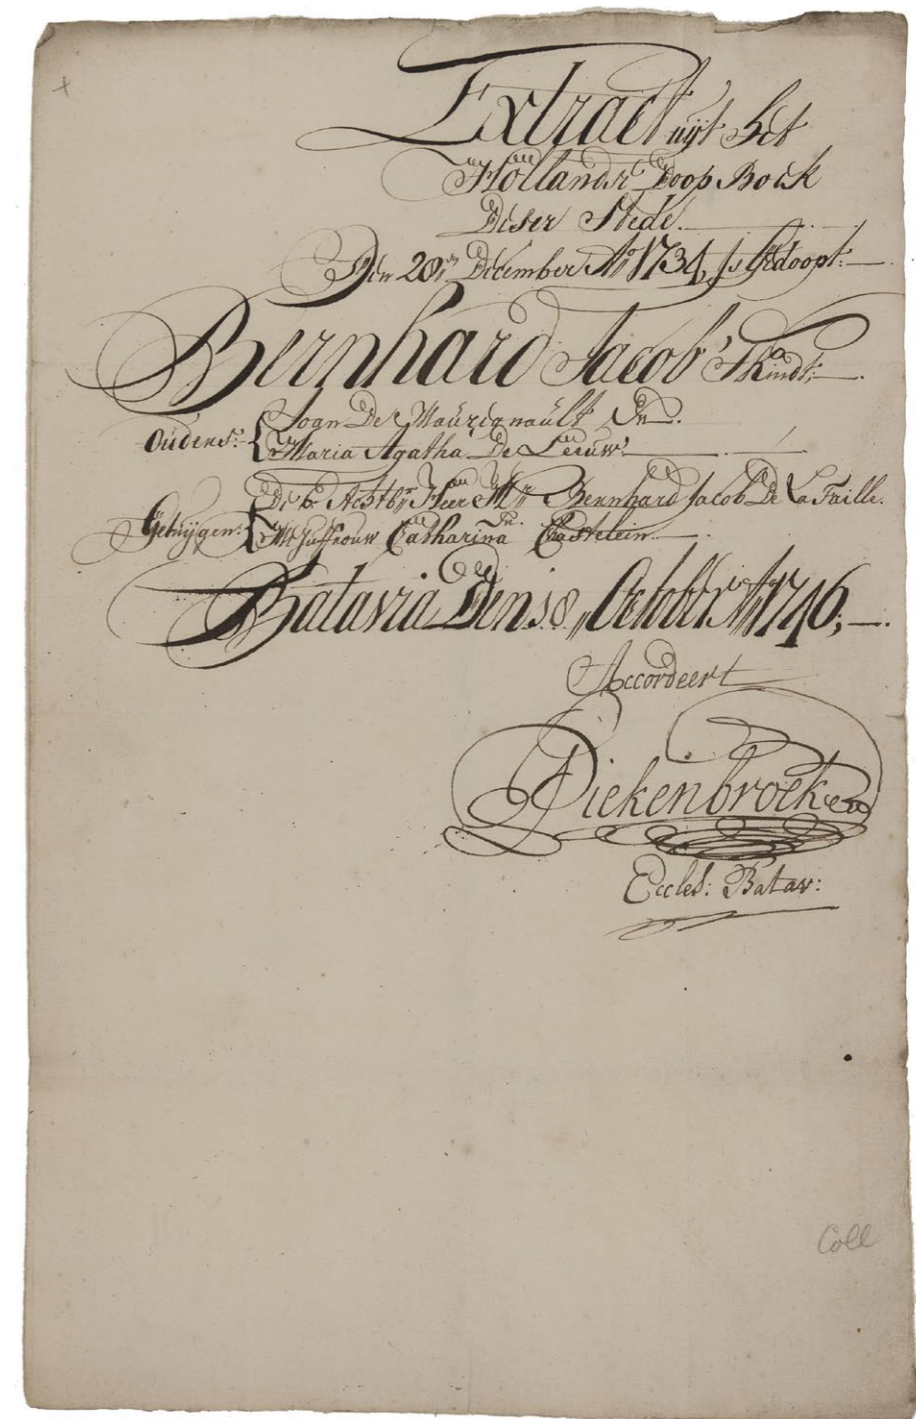 Extract uijt het
Hollands Doop Boek
Deser Stede.
Den 28.en December Ao. 1734, Is Gedoopt:
Bernhard Jacob 't Kindt;
Ouders: Joan De Mauregnault, En.
Maria Agatha De Leeuw
Getuijgen: De E. Achtbr. Heer Mr. Bernhard Jacob De La Faille.
En
Mejuffrouw Catharina Castelein
Batavia Den 8 October Ao. 1746;
Accordeert
Diekenbroek
Eccles: Batav:
Coll